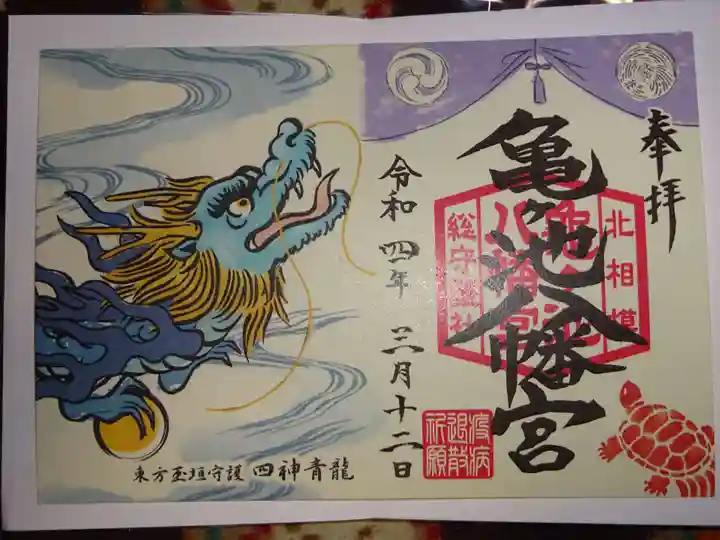 奉拝
亀ヶ池八幡宮
北相模
亀ヶ池
八幡宮
総守護社
疫病
退散
祈願
令和四年 三月十二日
東方玉垣守護 四神青龍